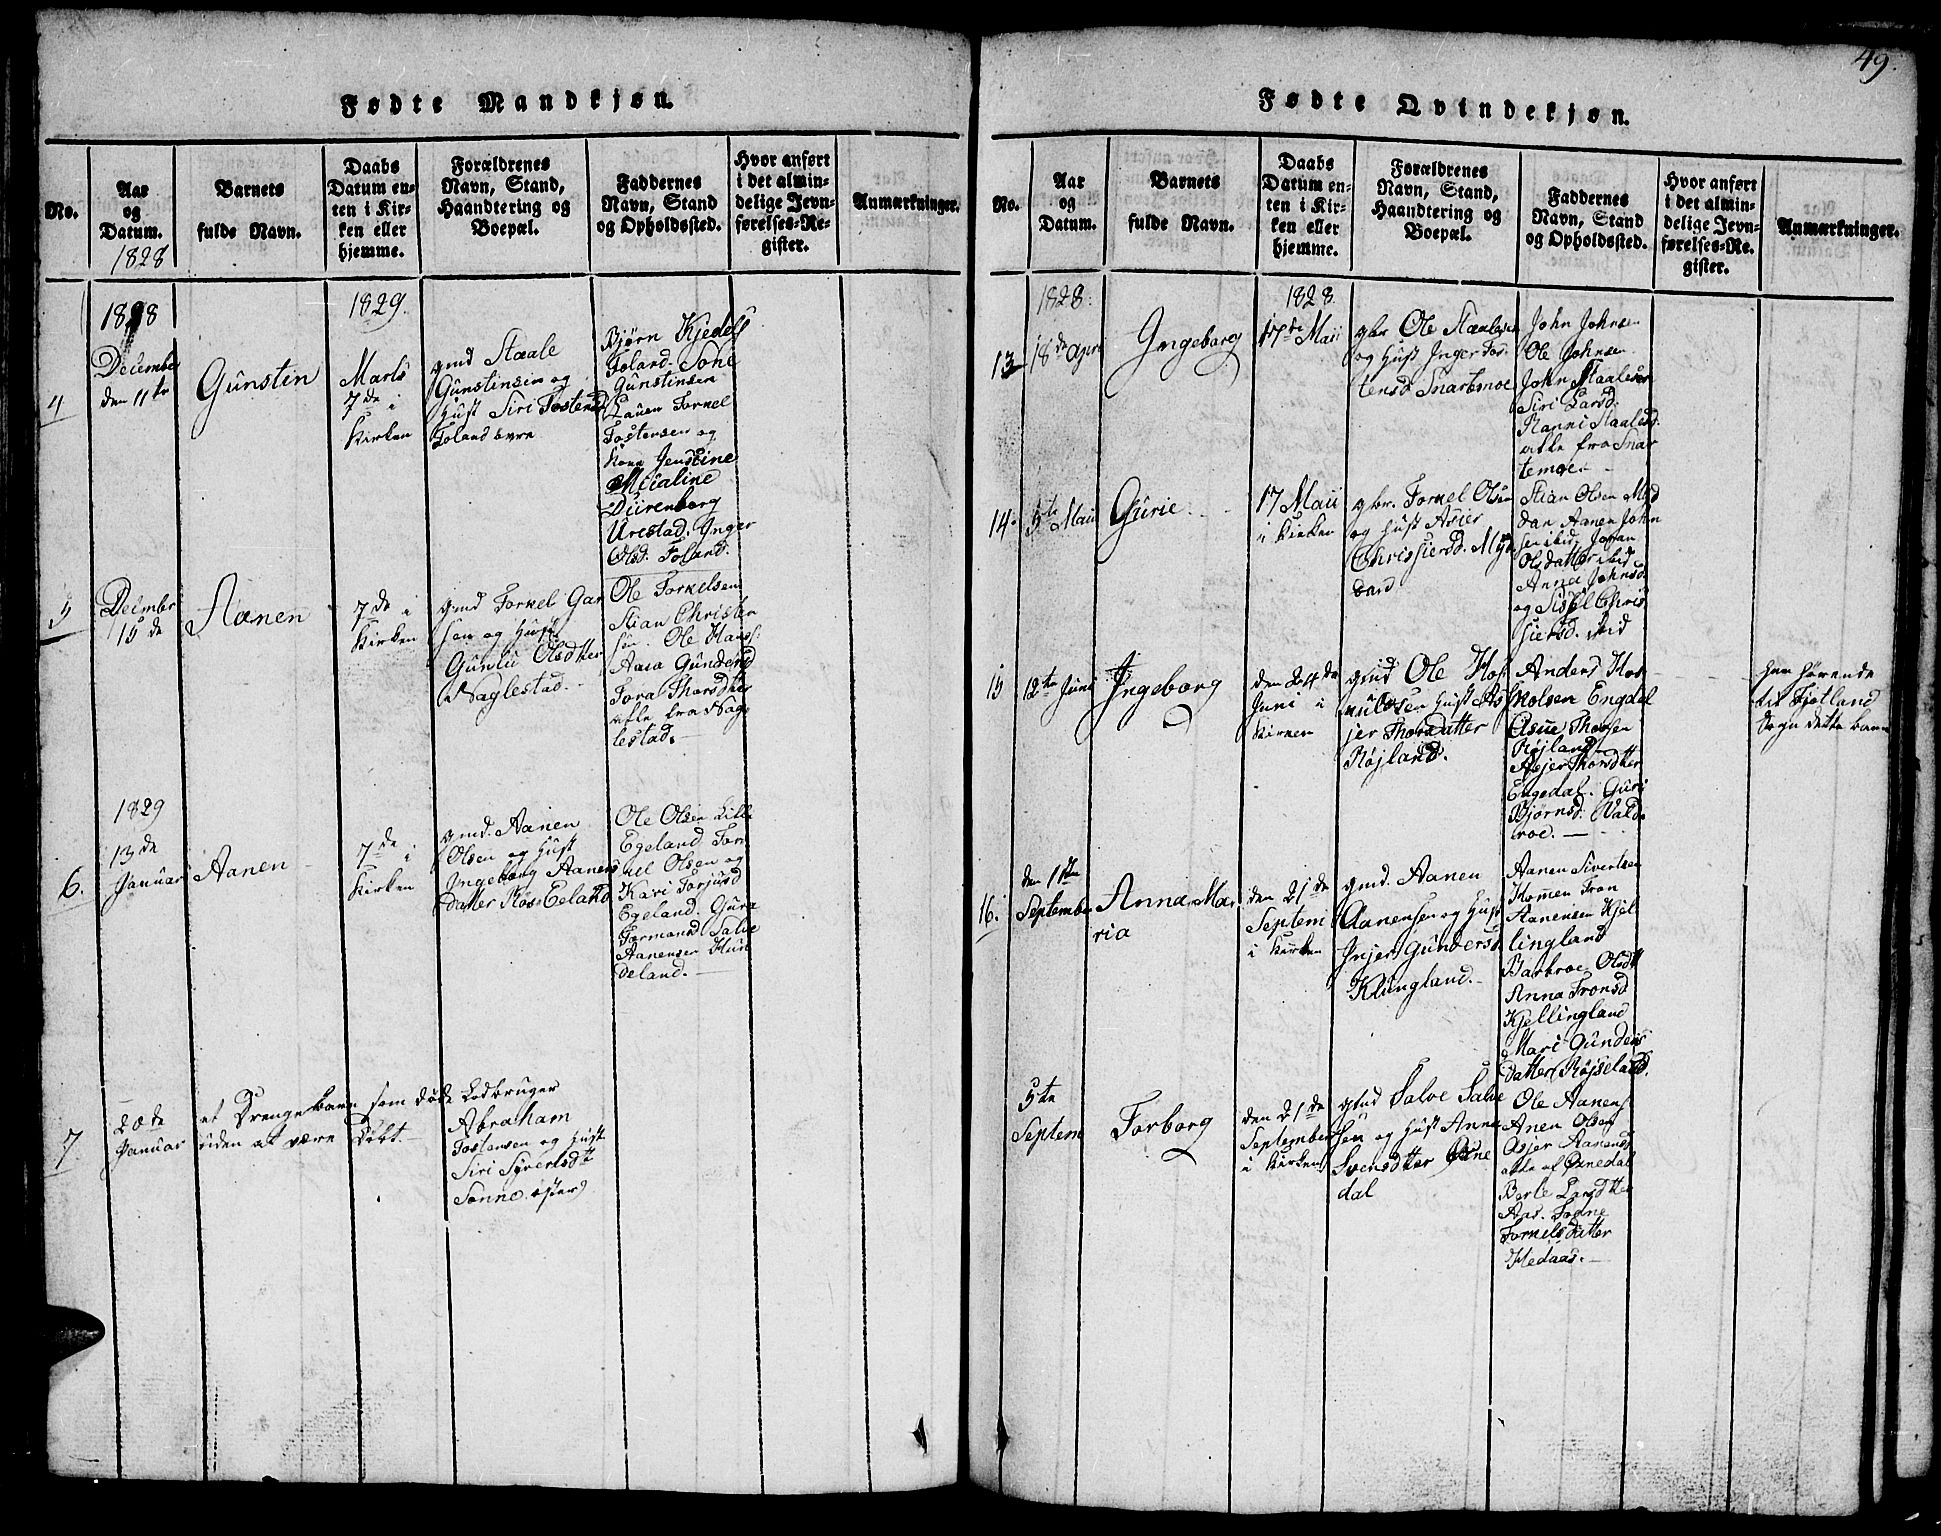 49.
Fødte Mandkjøn.
No.
Aar
og
Datum.
1828
Barnets
fulde Navn.
Daabs
Datum en-
ten i Kir-
ken eller
hjemme.
Forældrenes
Navn, Stand,
Haandtering og
Boepæl.
Faddernes
Navn, Stand
og Opholdssted.
Hvor anført
i det almin-
delige Jevn-
førelses-Re-
gister.
Anmærkninger.
4
1828
December
den 11te
Gunstin
1829
Marts
7de i
Kirken
gmd Staale
Gunstinsen og
Hust Siri Tostensd
Foland
Bjørn Kjedels
Foland. Tone
Gunstinsen
Torkel
Tostensen og
Kone Jenstine
Micaline
Dürenborg
Urestad. Inger
Olsd. Foland.
5
Decmbr
15de
Aanen
7de i
Kirken
gmd Torkel Gar
sen og Hust
Gunlu Olsdtter
Naglestad.
Ole Torkelsen
Stian Christen
sen. Ole Hans
Aasa Gunders
Tora Thorsdtter
alle fra Nag
lestad.
6.
1829
13de
Januar
Aanen
7de i
Kirken
gmd. Aanen
Olsen og Hust
Ingeborg Aanens
datter Eeland
Ole Olsen Lille
Egeland Tor
kel Olsen og
Kari Torjusd
Egeland. Gura
Tormand Salve
Aanensen Hun
deland.
7
20de
Januar
et Drengebarn som døde
uden at være Døbt.
Lodbruger
Abraham
Tostensen og Hust
Siri Syvertsdtt
Sønne
Fødte Qvindekjøn.
No.
Aar
og
Datum.
Barnets
fulde Navn.
Daabs
Datum en-
ten i Kir-
ken eller
hjemme.
Forældrenes
Navn, Stand,
Haandtering og
Boepæl.
Faddernes
Navn, Stand
og Opholdssted.
Hvor anført
i det almin-
delige Jevn-
førelses-Re-
gister.
Anmærkninger.
13
1828.
18de Apri
Ingeborg
1828.
17de Maii
gbr Ole Staalesen
og Hust Inger Tos-
tensd Snartmoe
John Johnsen
Ole Johnsen
John Staalesen
Siri Larsd.
Ranni Staalesd.
alle fra Snar
temoe.
14.
5te Maii
Gurie
17 Maii
i Kirken
gbr. Torkel Olsen
og Hust Asier
Chrissiersd.
Stian Olsen Mid
Aanen John
sen ibid.
Olsdatter ibid
Anna Johnsd.
og Sisel Chris
siersd. ibid
15
12te Juni
Ingeborg
den 24de
Juni i
Kirken
gmd Ole
Hust As
jer Thorsdatter
Røjland.
Anders
Engdal
Asue Thorsen
Røjland
Asjer Thorsdtter
Engedal. Guri
Bjørnsd. Vald
roe.
hen hørende
til Fjotland
Sogn dette barn
16.
den 1ste
September
Anna Ma
ria
den 21de
Septem
i Kirken
gmd. Aanen
Aanensen og Hust
Injer Gundersd
Klungland.
Aanen Sivertsen
Homen Tron
Aanensen Kjel
lingland
Barbroe Olsdtt
Anna Tronsd
Kjellingland
Mari Gunders
datter Røjseland.
5te
Septem
Torborg
den 21de
September
i Kirken
gmd Salve Salve
sen og Hust Anne
Svensdtter Øxne
dal
Ole Aanens
Anen Olsen
Asjer Aanensd
alle af Øxnedal
Berte Larsdtter
Aas. Togne
Torkelsdatter
Hedaas.